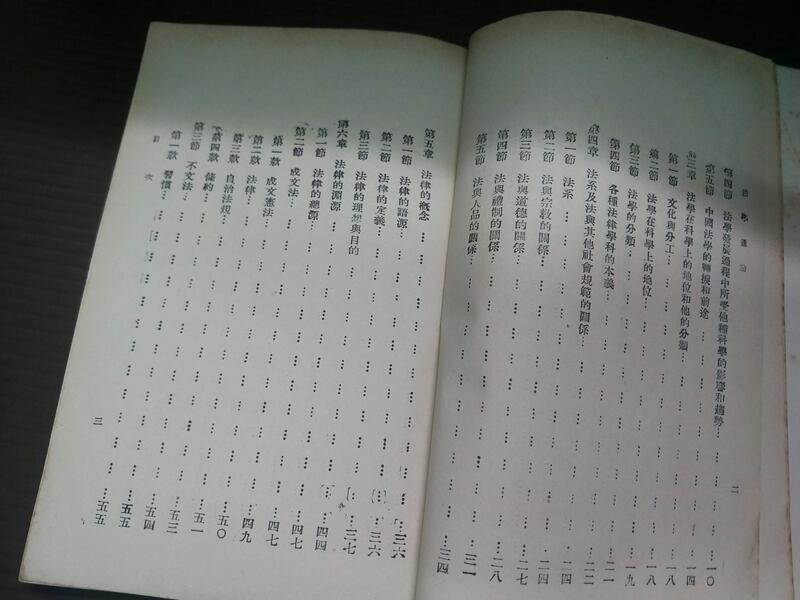 法學通論
二
第四節 法學發展過程中所受他種科學的影響和趨勢…………一〇
第五節 中國法學的轉捩和前途…………一四
第三章 法學在科學上的地位和他的分類…………一八
第一節 文化與分工…………一八
第二節 法學在科學上的地位…………一九
第三節 法學的分類…………二一
第四節 各種法律學科的本義…………二二
第四章 法系及法與其他社會規範的關係…………二四
第一節 法系…………二四
第二節 法與宗教的關係…………二七
第三節 法與道德的關係…………二八
第四節 法與禮制的關係…………三一
第五節 法與人品的關係…………三四
第五章 法律的概念…………三六
第一節 法律的語源…………三六
第二節 法律的定義…………三七
第三節 法律的理想與目的…………四四
第六章 法律的淵源…………四七
第一節 法律的總源…………四七
第二節 成文法…………四九
第一款 成文憲法…………五〇
第二款 法律…………五一
第三款 自治法規…………五三
第四款 條約…………五四
第三節 不文法…………五五
第一款 習慣…………五五
目次
三